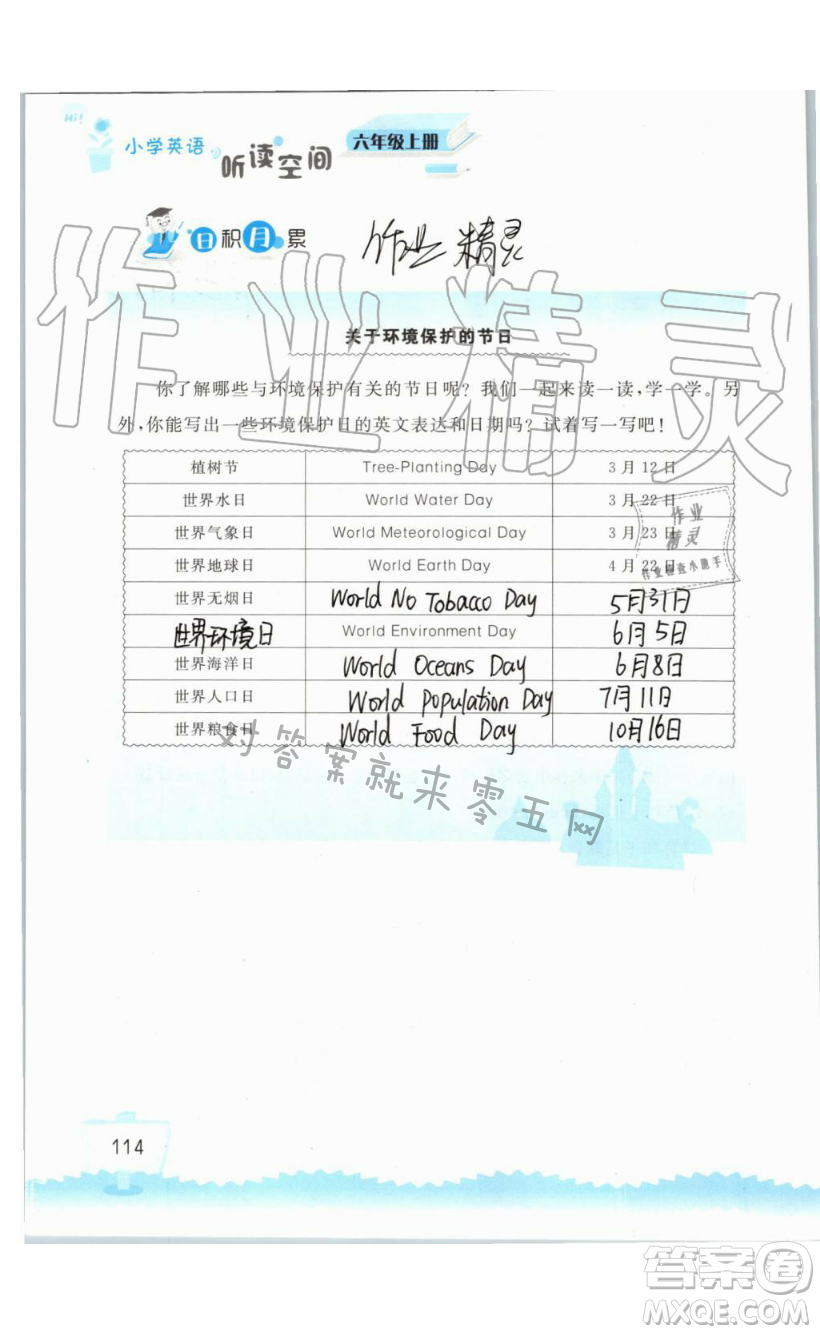 Hi!
小学英语 听读空间 六年级上册
日积月累
作业精灵
作业精灵
关于环境保护的节日
你了解哪些与环境保护有关的节日呢？我们一起来读一读，学一学。另
外，你能写出一些环境保护日的英文表达和日期吗？试着写一写吧！
植树节 Tree-Planting Day 3月12日
世界水日 World Water Day 3月22日
世界气象日 World Meteorological Day 3月23日
世界地球日 World Earth Day 4月22日
作业
精灵
作业检查小助手
世界无烟日 World No Tobacco Day 5月31日
世界环境日 World Environment Day 6月5日
世界海洋日 World Oceans Day 6月8日
世界人口日 World Population Day 7月11日
世界粮食日 World Food Day 10月16日
对答案就来零五网
114
答案卷
MXQE.COM